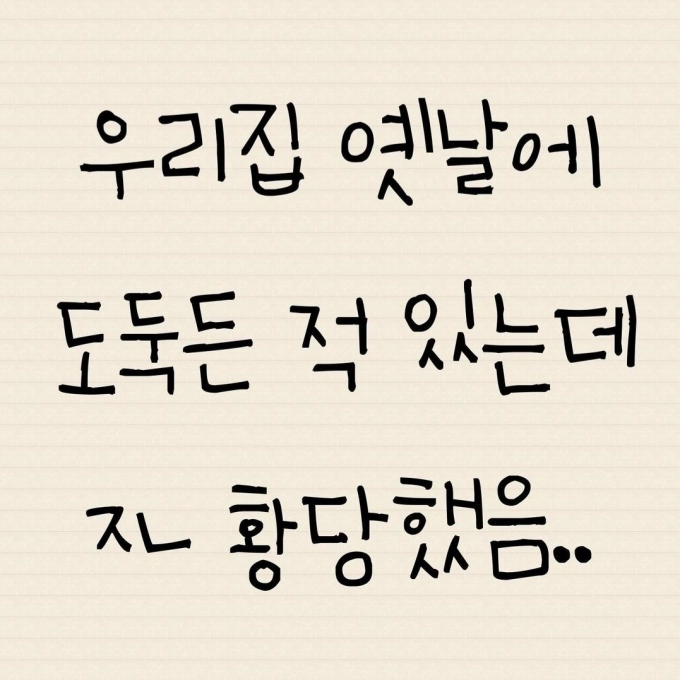 우리집 옛날에
도둑든 적 있는데
ㅈㄴ 황당했음..